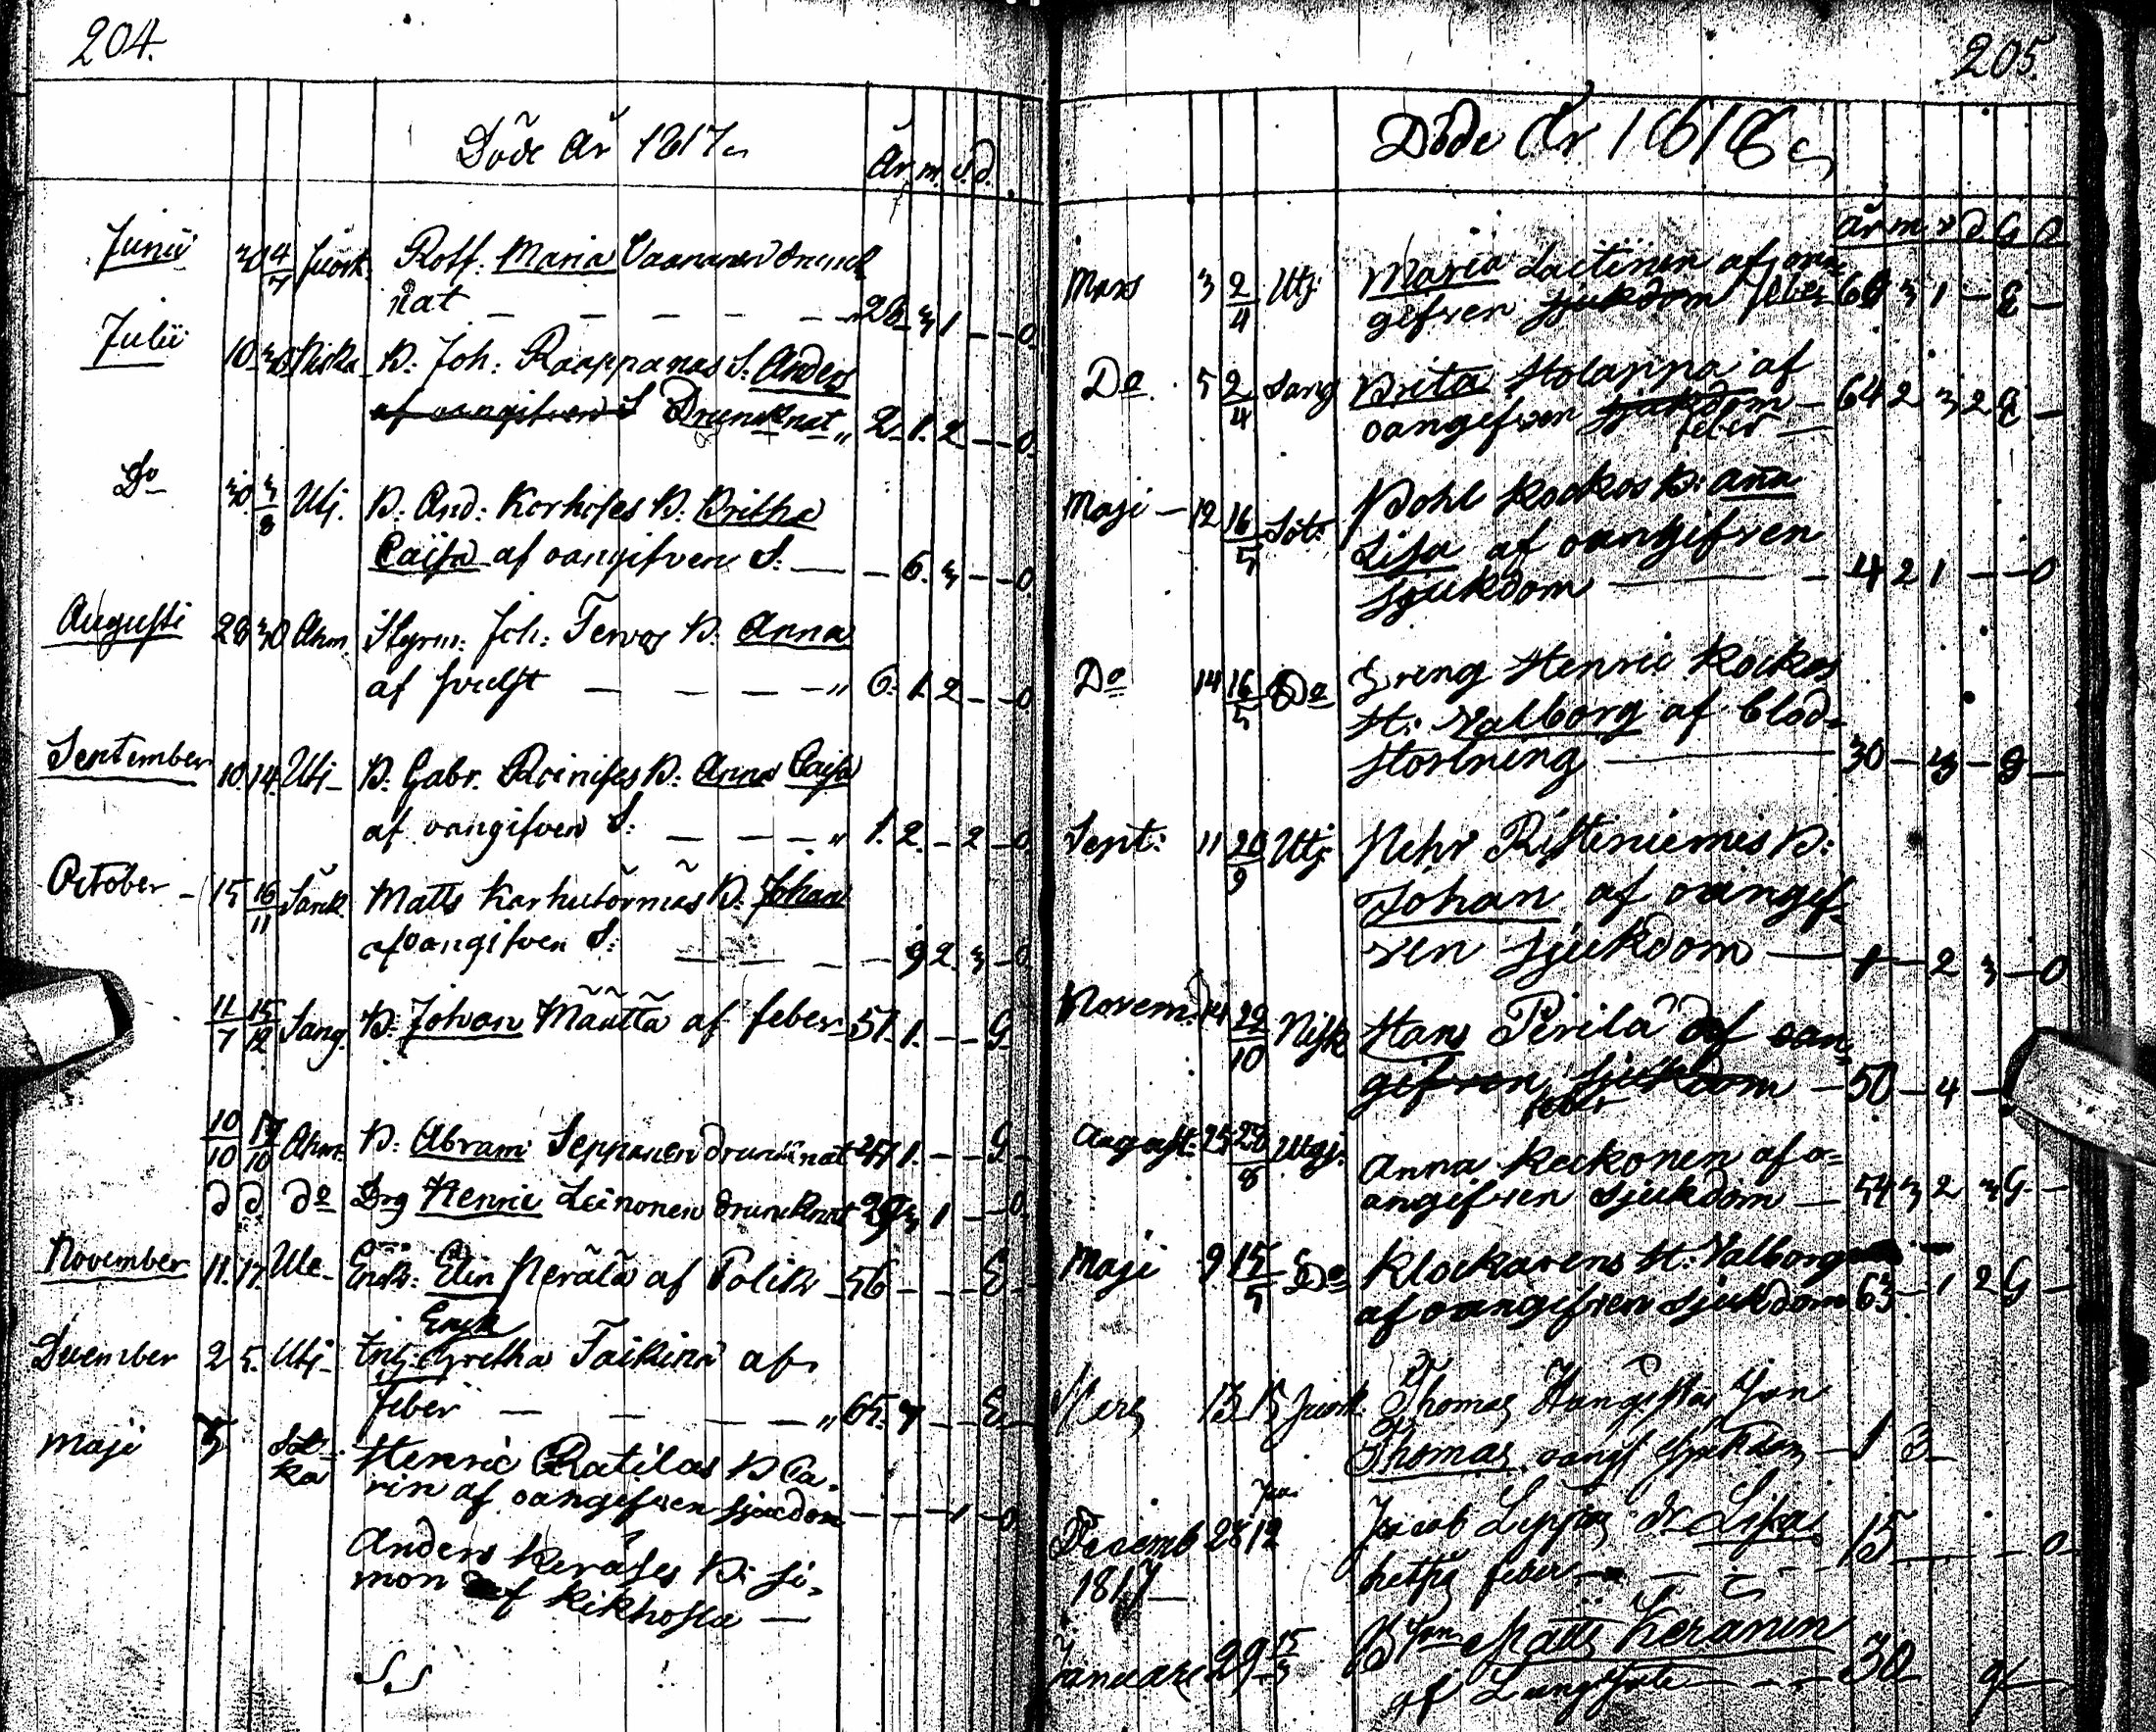 204.
Döde År 1817.
År. m. v. d.
Junii 30 4/7 Juork. Rotf. Maria Vaananen drunck
nat — — — — — 28 3 1 — — 0
Julii 10 30 Niska B: Joh: Raappanas S: Anders
af oangifven S Druncknat „ 2. 1. 2 — — 0
Do 30 3/8 Utj. B: And: Korhoses B: Britha
Caisa af oangifven S: — — 6. 3 — — 0
Augusti 28 30 Ahm. Styrm: Joh: Tervos B: Anna
af svulst — — — — „ 6. 1. 2 — — 0
September 10. 14. Utj— B: Gabr. Roinises B: Anna Caisa
af oangifven S: — — — „ 1. 2. — 2 — 0
October — 15 16/11 Särk. Matts Karhutörmäs B: Johan
af oangifven S: — — — — 9 2. 3 — 0
11/7 15/12 Sang. B: Johan Määttä af feber 51. 1. — — G
10/10 17/10 Ahm. B: Abram Seppänen druncknat 47 1. — — G
d d do Drg Henric Leinonen druncknat 29 3 1 — 0
November 11. 17. Ule— Enk: Elin Kerälä af Colik 56 — — — E
Enck
December 2 5. Utj— Gretha Taikina af
feber — — — — „ 65. 7 — — E
Maji 5 Sot-
ka Henric Ratilas B Ca-
rin af oangifven sjucdom — — — 1 — 0
Anders Keräses B: Si-
mon af kikhosta —
205.
Döde År 1818
år m v d G O
Mars 3 2/4 Utj: Maria Laitinen af oan
gifven sjukdom feber 60 3 1 — E —
Do. 5 2/4 Sang Brita Holappa af
oangifven sjukdom — 64 2 3 2 E —
feber —
Maji — 12 16/5 Sot: Pohl Kockos B: Ana
Lisa af oangifven
sjukdom — 4 2 1 — — 0
Do 14 16/5 Do Dreng Henric Kockos
H: Valborg af blod-
stortning — 30 — 3 — G —
Sept: 11 20/9 Utj: Nehr Risteniemes B:
Johan af oangif-
ven sjukdom — 1 — 2 3 — 0
Novem. 14 22/10 Nisk Hans Perilä af oan-
gifven sjukdom — 50 — 4 —
feber
August: 25 28/8 Utgj: Anna Keckonen af o-
angifven sjukdom — 54 3 2 3 G —
Maji 9 15/5 Do Klockarens H: Valborg
af oangifven sjukdom 63 — 1 2 G —
Mars 13 15 Juork. Thomas
Thomas oangf sjukdom — 1 3 —
Decemb 28 12 Jacob Lisa
1817 — hettsig feber — 15 — — 0
Januari 29 15/3 Matts Keränen
af Lungsot — — — 30 G